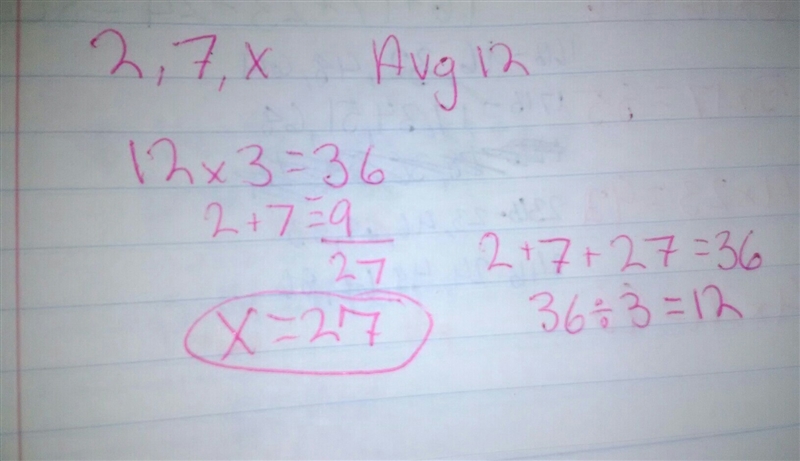 2, 7, x Avg 12
12 x 3 = 36
2 + 7 = 9
27
x = 27
2 + 7 + 27 = 36
36 ÷ 3 = 12